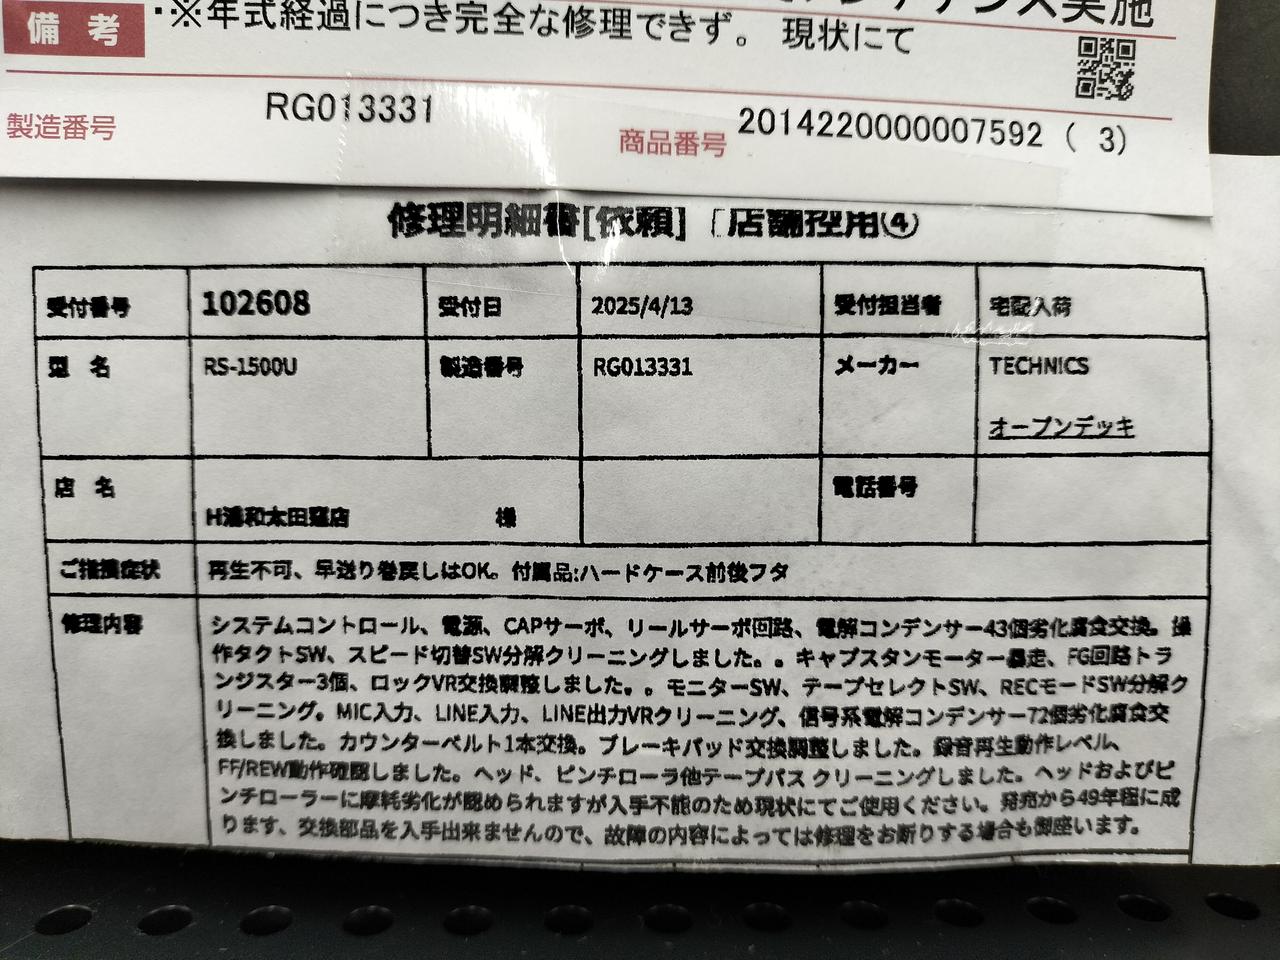 実施
備考 ・※年式経過につき完全な修理できず。 現状にて
製造番号 RG013331 商品番号 2014220000007592 ( 3)
修理明細書[依頼] [店舗控用④
受付番号 102608 受付日 2025/4/13 受付担当者 宅配入荷
型 名 RS-1500U 製造番号 RG013331 メーカー TECHNICS
オープンデッキ
店 名 電話番号
H浦和太田窪店 様
ご指摘症状 再生不可、早送り巻戻しはOK。付属品:ハードケース前後フタ
修理内容 システムコントロール、電源、CAPサーボ、リールサーボ回路、電解コンデンサー43個劣化腐食交換。操
作タクトSW、スピード切替SW分解クリーニングしました。。キャプスタンモーター暴走、FG回路トラ
ンジスター3個、ロックVR交換調整しました。。モニターSW、テープセレクトSW、RECモードSW分解ク
リーニング。MIC入力、LINE入力、LINE出力VRクリーニング、信号系電解コンデンサー72個劣化腐食交
換しました。カウンターベルト1本交換。ブレーキパッド交換調整しました。録音再生動作レベル、
FF/REW動作確認しました。ヘッド、ピンチローラ他テープパス クリーニングしました。ヘッドおよびピ
ンチローラーに摩耗劣化が認められますが入手不能のため現状にてご使用ください。発売から49年程に成
ります、交換部品を入手出来ませんので、故障の内容によっては修理をお断りする場合も御座います。